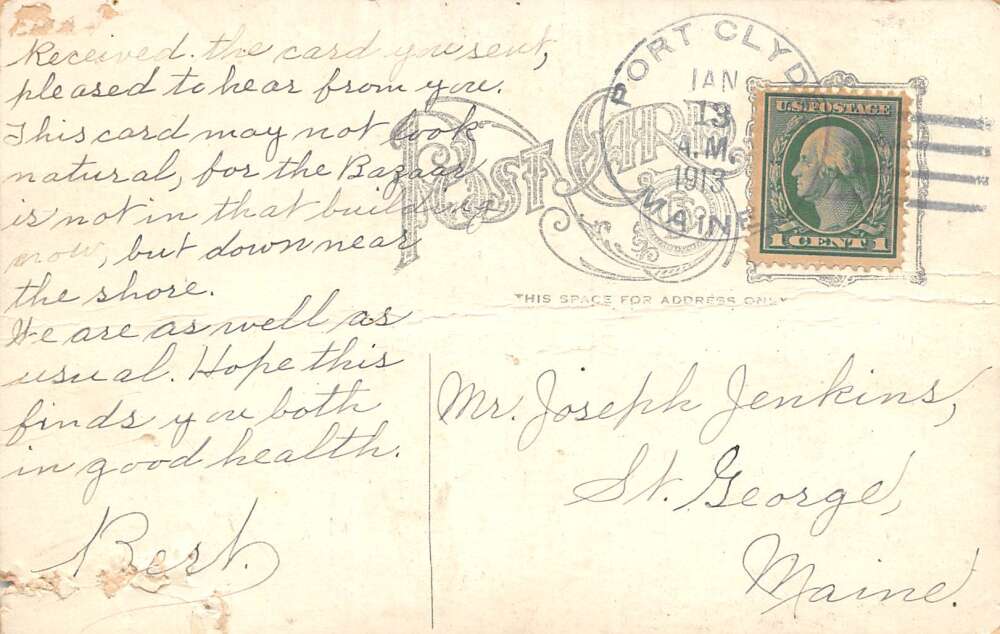 Received the card you sent,
pleased to hear from you.
This card may not look
natural, for the Bazaar
is not in that building
now, but down near
the shore.
We are as well as
usual. Hope this
finds you both
in good health.
Bert.
Post Card
PORT CLYD
JAN
13
A.M.
1913
MAINE
U.S. POSTAGE
1 CENT 1
THIS SPACE FOR ADDRESS ONLY
Mr. Joseph Jenkins,
St. George,
Maine.